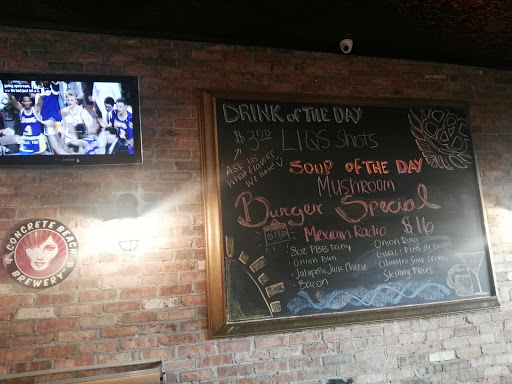 going upstream,
DRINK of THE DAY
$3.50 LIQS Shots
ASK US
what flavors
we have
SOUP OF THE DAY
Mushroom
Burger Special
Mexican Radio $16
• 8oz PBB Patty
• Onion Bun
• Jalapeño Jack Cheese
• Bacon
Onion Ring
Guac • Pico de Gallo
• Cilantro Sour Cream
• Skinny Fries
CONCRETE BEACH
BREWERY